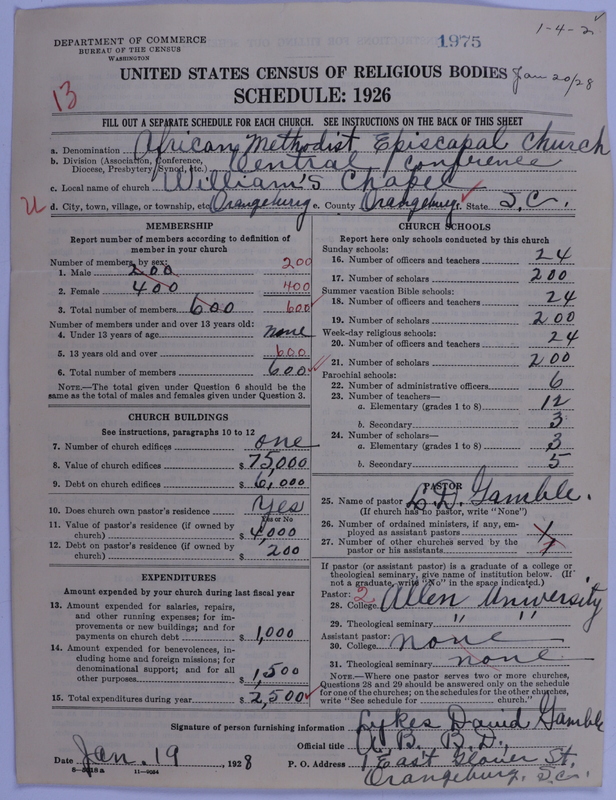 1-4-2
DEPARTMENT OF COMMERCE
BUREAU OF THE CENSUS
WASHINGTON
1975
UNITED STATES CENSUS OF RELIGIOUS BODIES
Jan 20/28
13
SCHEDULE: 1926
FILL OUT A SEPARATE SCHEDULE FOR EACH CHURCH. SEE INSTRUCTIONS ON THE BACK OF THIS SHEET
a. Denomination African Methodist Episcapal Church
b. Division (Association, Conference, Diocese, Presbytery, Synod, etc.) Central Conference
c. Local name of church William's Chapel
d. City, town, village, or township, etc. Orangeburg e. County Orangeburg f. State S.C.
MEMBERSHIP
Report number of members according to definition of
member in your church
Number of members, by sex:
1. Male 200 200
2. Female 400 400
3. Total number of members 600 600
Number of members under and over 13 years old:
4. Under 13 years of age none
5. 13 years old and over 600
6. Total number of members 600
NOTE.—The total given under Question 6 should be the
same as the total of males and females given under Question 3.
CHURCH BUILDINGS
See instructions, paragraphs 10 to 12
7. Number of church edifices one
8. Value of church edifices $ 75,000
9. Debt on church edifices $ 6,000
10. Does church own pastor's residence? Yes
Yes or No
11. Value of pastor's residence (if owned by
church) $ 4,000
12. Debt on pastor's residence (if owned by
church) $ 200
EXPENDITURES
Amount expended by your church during last fiscal year
13. Amount expended for salaries, repairs,
and other running expenses; for im-
provements or new buildings; and for
payments on church debt $ 1,000
14. Amount expended for benevolences, in-
cluding home and foreign missions; for
denominational support; and for all
other purposes $ 1,500
15. Total expenditures during year $ 2,500
CHURCH SCHOOLS
Report here only schools conducted by this church
Sunday schools:
16. Number of officers and teachers 24
17. Number of scholars 200
Summer vacation Bible schools:
18. Number of officers and teachers 24
19. Number of scholars 200
Week-day religious schools:
20. Number of officers and teachers 24
21. Number of scholars 200
Parochial schools:
22. Number of administrative officers 6
23. Number of teachers—
a. Elementary (grades 1 to 8) 12
b. Secondary 3
24. Number of scholars—
a. Elementary (grades 1 to 8) 3
b. Secondary 5
PASTOR
25. Name of pastor L. D. Gamble.
(If church has no pastor, write "None")
26. Number of ordained ministers, if any, em-
ployed as assistant pastors 1
27. Number of other churches served by the
pastor or his assistants 1
If pastor (or assistant pastor) is a graduate of a college or
theological seminary, give name of institution below. (If
not a graduate, write "No" in the space indicated.)
Pastor: 2
28. College Allen University
29. Theological seminary " "
Assistant pastor:
30. College none
31. Theological seminary none
NOTE.—Where one pastor serves two or more churches,
Questions 28 and 29 should be answered only on the schedule
for one of the churches; on the schedules for the other churches,
write "See schedule for church."
Signature of person furnishing information Lykes David Gamble
Official title A. B. B. D.
Date Jan. 19, 1928 P. O. Address 1 East Glover St,
Orangeburg, S.C.
11—9024